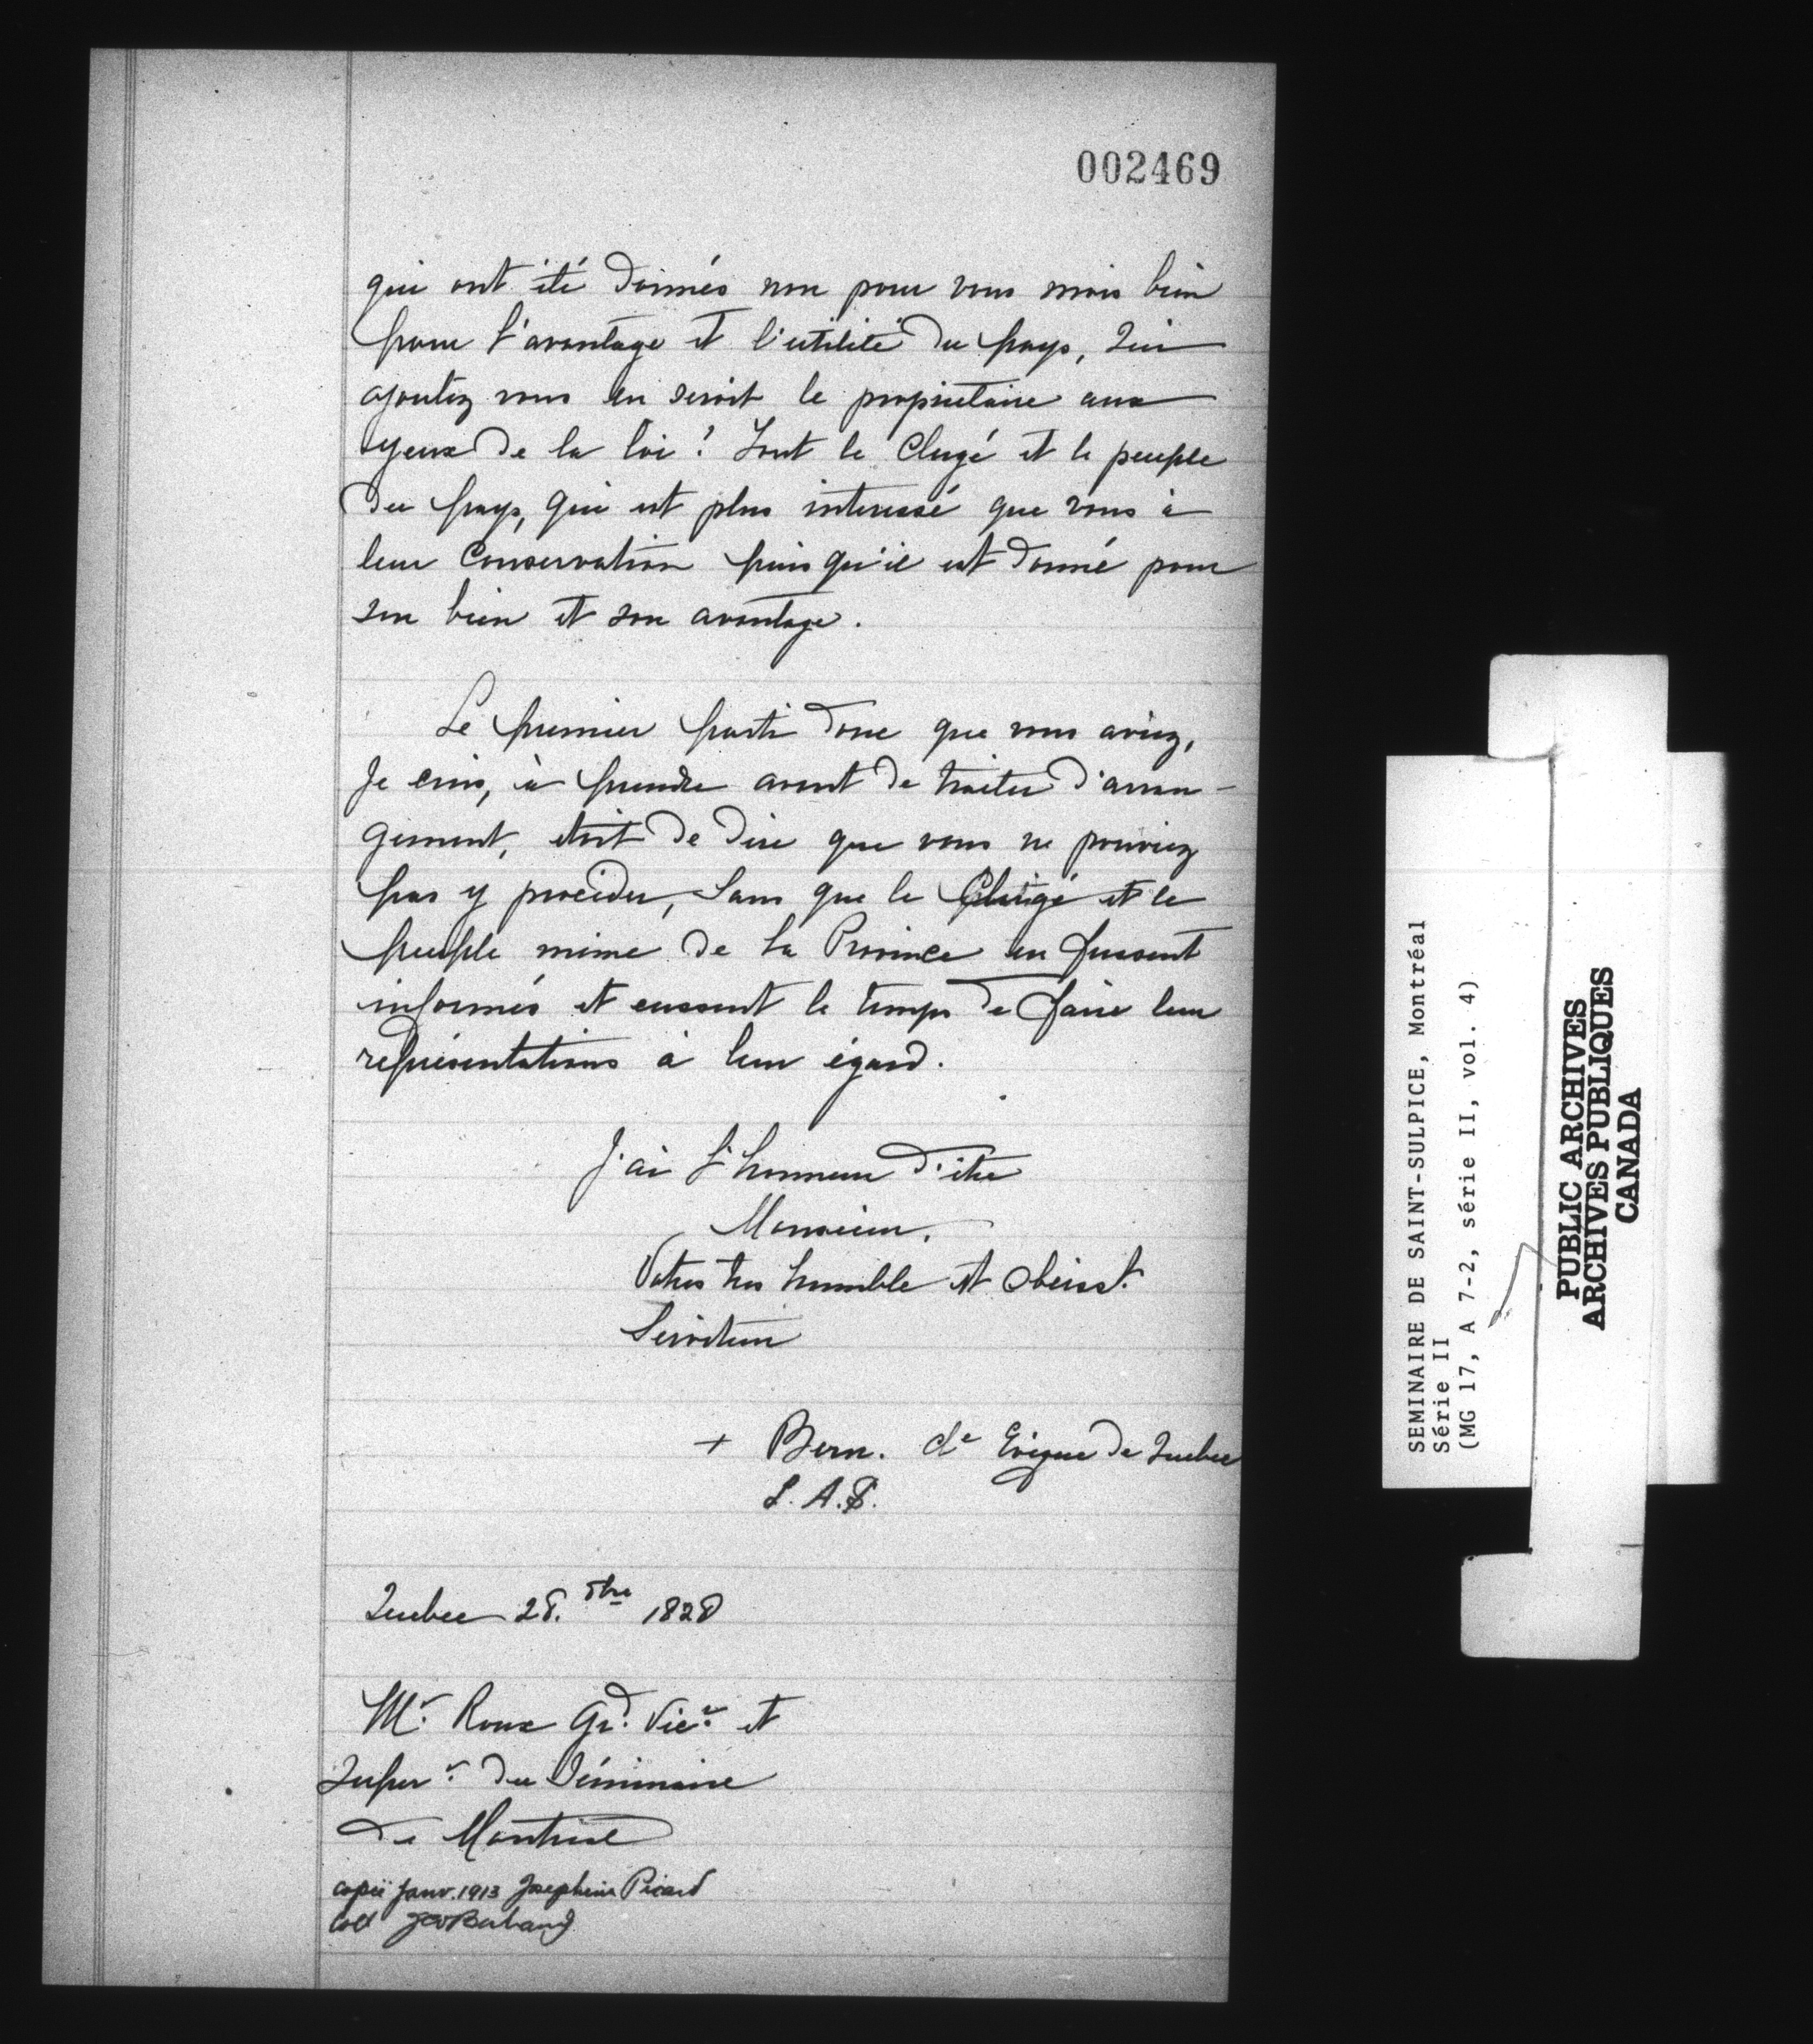 002469
qui ont été donnés non pour vous mais bien
pour l'avantage et l'utilité du pays, Qui
ajoutez vous en seroit le propriétaire aux
yeux de la loi? Tout le Clergé et le peuple
du pays, qui est plus interessé que vous à
leur Conservation puisqu'il est donné pour
son bien et son avantage.
Le premier parti donc que vous aviez,
Je crois, à prendre avant de traiter d'arran-
gement, etoit de dire que vous ne pouviez
pas y procéder, Sans que le Clergé et le
peuple même de la Province en fussent
informés et eussent le temps de faire leur
représentations à leur égard.
J'ai l'honneur d'être
Monsieur,
Votres très humble et obéisst.
Serviteur
+ Bern. Cl. Evêque de Quebec
S. A. S.
Quebec 28. 8bre 1828
Mr. Roux Gd. Vicr. et
Super. du Séminaire
de Montréal
copié janv. 1913 Josephine Picard
Coll
SEMINAIRE DE SAINT-SULPICE, Montréal
Série II
(MG 17, A 7-2, série II, vol. 4)
PUBLIC ARCHIVES
ARCHIVES PUBLIQUES
CANADA